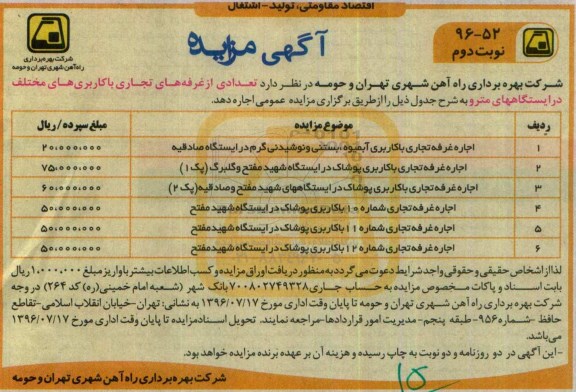 اقتصاد مقاومتی، تولید-اشتغال
شرکت بهره برداری
راه آهن شهری تهران و حومه
آگهی مزایده
۹۶-۵۲
نوبت دوم
شرکت بهره برداری راه آهن شهری تهران و حومه در نظر دارد تعدادی از غرفه های تجاری با کاربری های مختلف
در ایستگاههای مترو به شرح جدول ذیل را از طریق برگزاری مزایده عمومی اجاره دهد.
ردیف موضوع مزایده مبلغ سپرده / ریال
۱ اجاره غرفه تجاری با کاربری آبمیوه، بستنی و نوشیدنی گرم در ایستگاه صادقیه ۲۰،۰۰۰،۰۰۰
۲ اجاره غرفه تجاری با کاربری پوشاک در ایستگاه شهید مفتح و گلبرگ (پک ۱) ۷۵،۰۰۰،۰۰۰
۳ اجاره غرفه تجاری با کاربری پوشاک در ایستگاههای شهید مفتح و صادقیه (پک ۲) ۶۰،۰۰۰،۰۰۰
۴ اجاره غرفه تجاری شماره ۱۰ با کاربری پوشاک در ایستگاه شهید مفتح ۵۰،۰۰۰،۰۰۰
۵ اجاره غرفه تجاری شماره ۱۱ با کاربری پوشاک در ایستگاه شهید مفتح ۵۰،۰۰۰،۰۰۰
۶ اجاره غرفه تجاری شماره ۱۲ با کاربری پوشاک در ایستگاه شهید مفتح ۵۰،۰۰۰،۰۰۰
لذا از اشخاص حقیقی و حقوقی واجد شرایط دعوت می گردد به منظور دریافت اوراق مزایده و کسب اطلاعات بیشتر با واریز مبلغ ۱،۰۰۰،۰۰۰ ریال
بابت اسناد و پاکات مخصوص مزایده به حساب جاری ۷۰۰۸۰۲۷۴۹۳۲۸ بانک شهر (شعبه امام خمینی (ره) کد ۲۶۴) در وجه
شرکت بهره برداری راه آهن شهری تهران و حومه تا پایان وقت اداری مورخ ۱۳۹۶/۰۷/۱۷ به نشانی: تهران-خیابان انقلاب اسلامی-تقاطع
حافظ -شماره ۹۵۶- طبقه پنجم- مدیریت امور قراردادها-مراجعه نمایند. تحویل اسناد مزایده تا پایان وقت اداری مورخ ۱۳۹۶/۰۷/۱۷
می باشد.
-این آگهی در دو روزنامه و دو نوبت به چاپ رسیده و هزینه آن بر عهده برنده مزایده خواهد بود.
شرکت بهره برداری راه آهن شهری تهران و حومه
۱۵